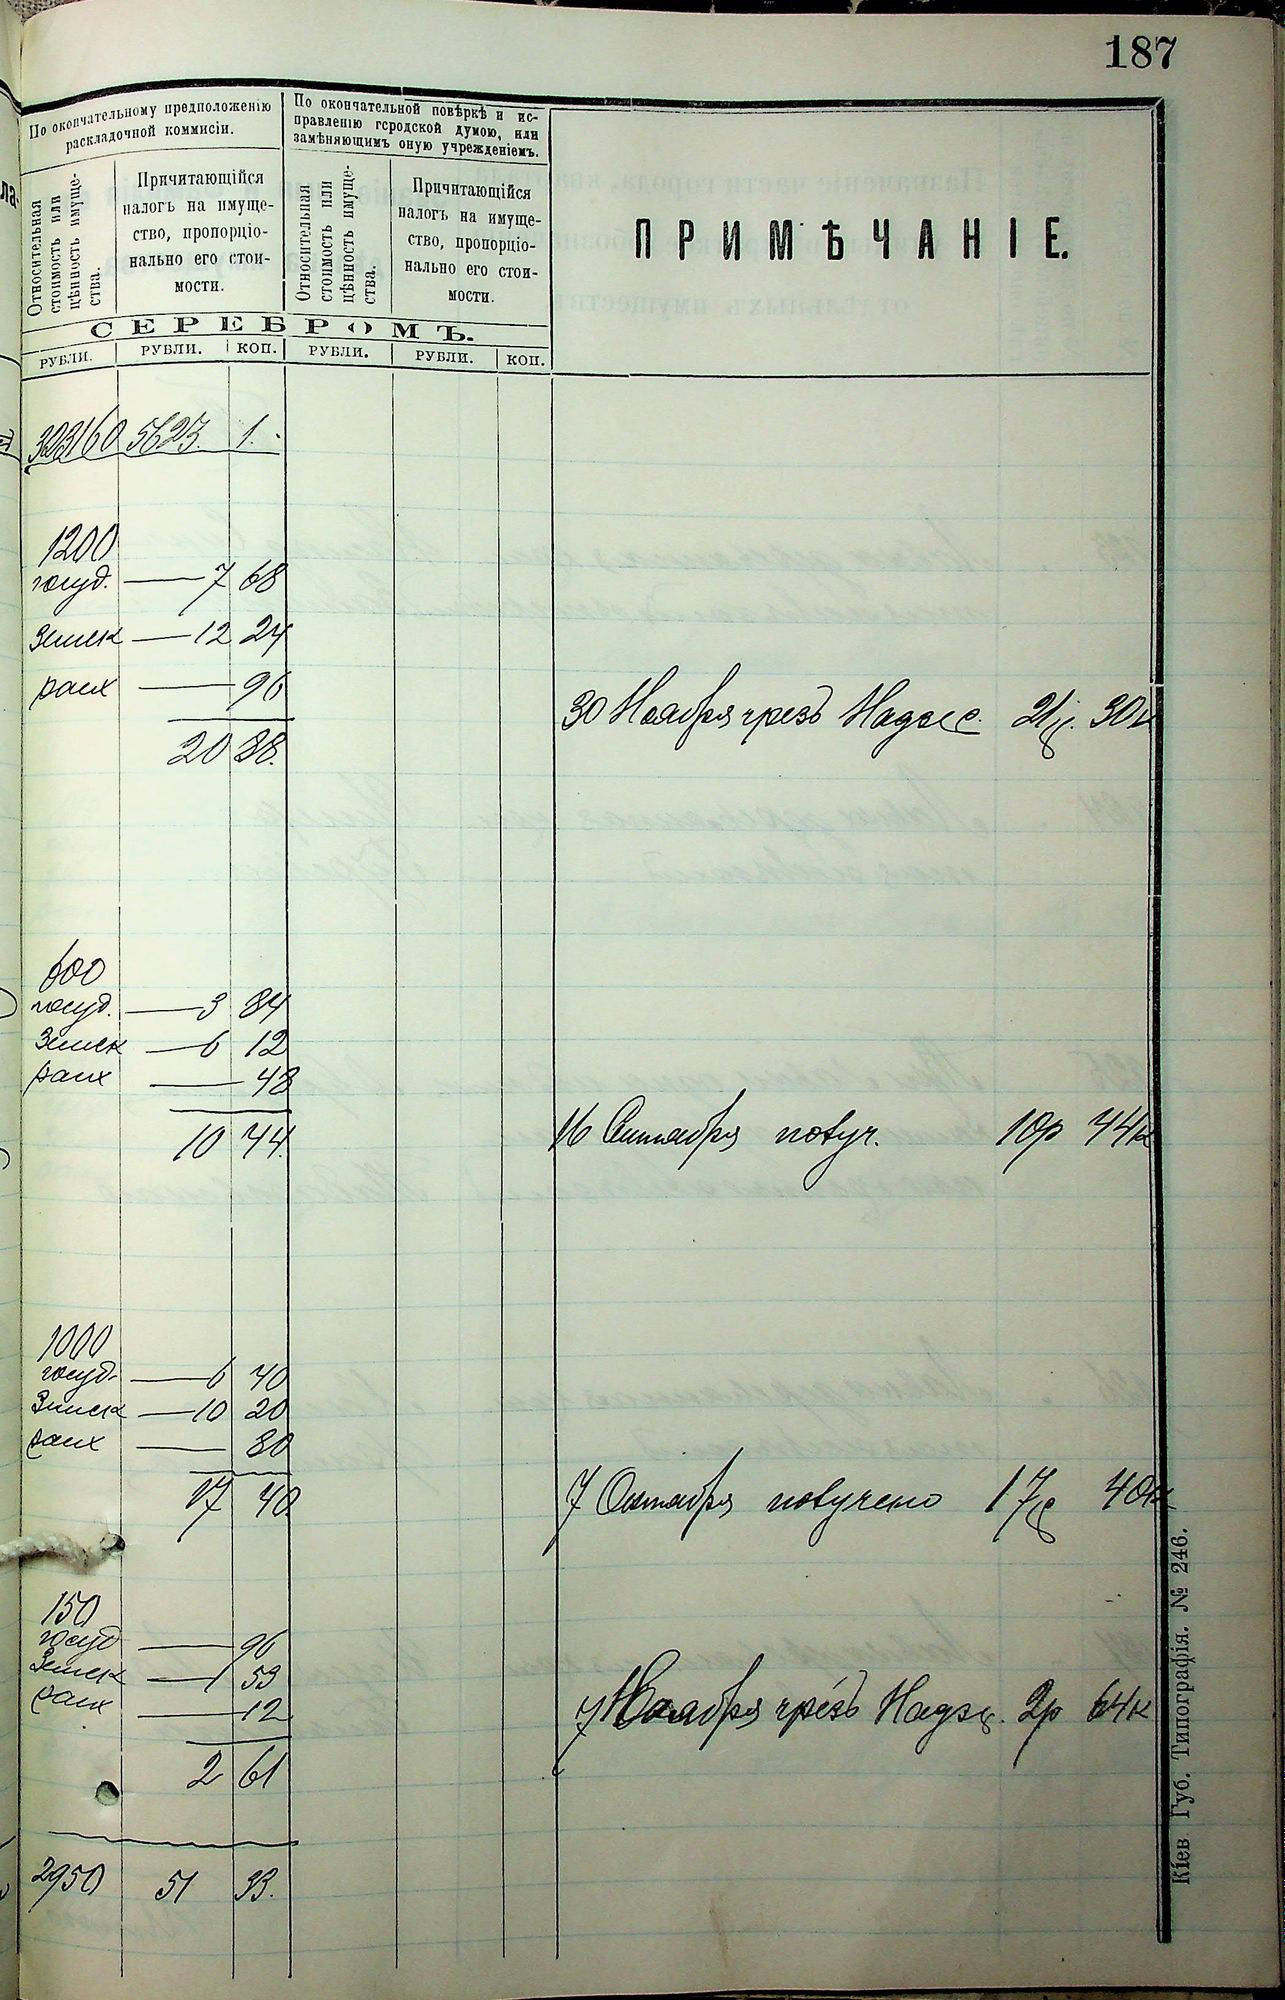 187
По окончательному предположенію
раскладочной коммисіи.
По окончательной повѣркѣ и ис-
правленію городской думою, или
замѣняющимъ оную учрежденіемъ.
Относительная
стоимость или
цѣнность имуще-
ства.
Причитающійся
налогъ на имуще-
ство, пропорціо-
нально его стои-
мости.
Относительная
стоимость или
цѣнность имуще-
ства.
Причитающійся
налогъ на имуще-
ство, пропорціо-
нально его стои-
мости.
ПРИМѢЧАНІЕ.
СЕРЕБРОМЪ.
РУБЛИ. РУБЛИ. КОП. РУБЛИ. РУБЛИ. КОП.
323160 5623. 1.
1200
госуд. — 7 68
Земск — 12 24
раск — 96
20 88.
30 Ноября чрезъ Надзс. 21р. 30к
600
госуд. — 3 84
Земск — 6 12
раск — 48
10 44.
16 Октября получ. 10р 44к
1000
госуд. — 6 40
Земск — 10 20
раск — 80
17 40.
7 Октября получено 17р 40к
150
госуд — 96
Земск — 1 53
раск — 12
2 61
7 Ноября чрезъ Надз. 2р 64к
2950 51 33.
Кіев Губ. Типографія. № 246.